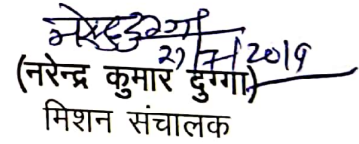 27/7/2019
(नरेन्द्र कुमार दुग्गा)
मिशन संचालक